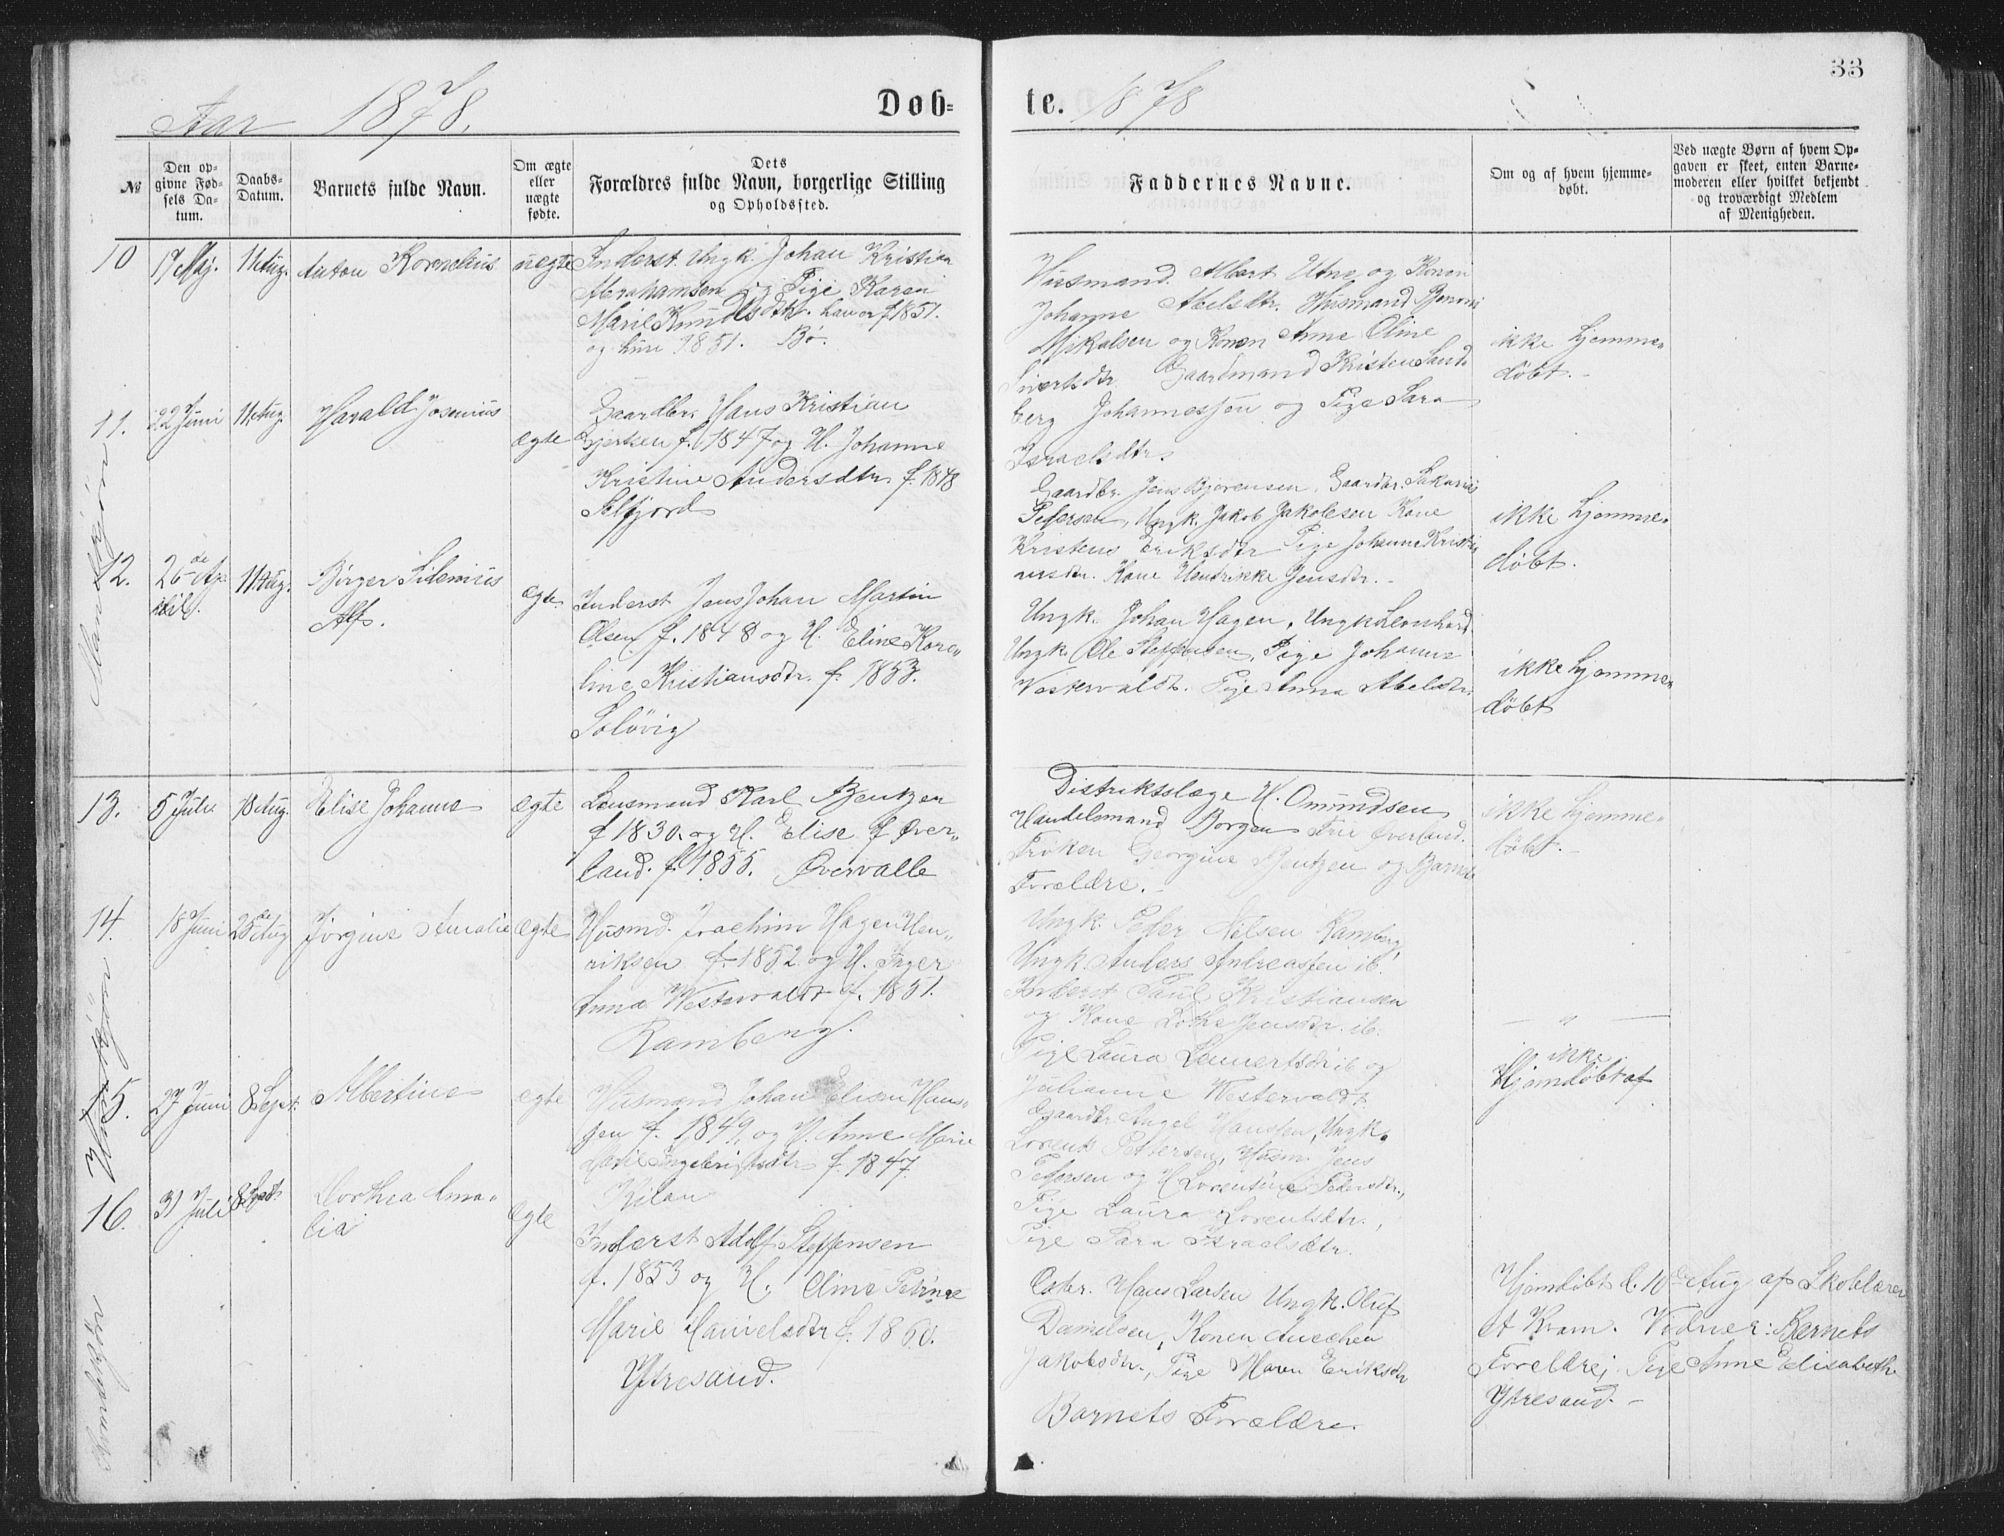 33
Aar 1878.
Døb-
te. 1878
№
Den op-
givne Fød-
sels Da-
tum.
Daabs-
Datum.
Barnets fulde Navn.
Om ægte
eller
uægte
fødte.
Dets
Forældres fulde Navn, borgerlige Stilling
og Opholdssted.
Faddernes Navne.
Om og af hvem hjemme-
døbt.
Ved uægte Børn af hvem Op-
gaven er skeet, enten Barne-
moderen eller hvilket bekjendt
og troværdigt Medlem
af Menigheden.
Mandkjøn
10
17 Maj.
11 Aug.
Anton Kornelius
uegte
Inderst. Ungk. Johan Kristian
Abrahamsen og Pige Karen
Marie Knudsdtr. han er f 1851.
og hun 1851. Bø.
Husmand. Albert Utne og Konen
Johanne Abelsdtr. Husmand Benoni
Mikalsen og Konen Anne Oline
Sivertsdtr. Gaardmand Kristen Sand-
berg Johannessøn og Pige Sara
Israelsdtr.
ikke hjemme-
døbt. -
11.
22 Juni
11. Aug.
Harald Josenius
ægte
Gaardbr. Hans Kristian
Gjertsen f. 1847 og H. Johanne
Kristine Andersdtr. f. 1848
Selfjord
Gaardbr. Jens Bjørensen, Gaardbr. Sakarias
Pedersen, Ungk. Jakob Jakobsen Kone
Kristens Eriksdtr Pige Johanne Kristi
ansdtr. Kone Hendrikke Jensdtr. -
ikke hjemme-
døbt.
12.
26de Ap-
ril.
11 Aug.
Børger Silenius
Alf.
ægte
Inderst Jens Johan Martin
Olsen f. 1848 og H. Eline Kore-
line Kristiansdtr. f. 1853.
Soløvig
Ungk. Johan Hagen, Ungk Leonhard
Ungk. Ole Steffensen, Pige Johanna
Westervaldt. Pige Anna Abelsdtr.
ikke hjemme-
døbt
Kvindekjøn
13.
5 Juli
18 Aug.
Elise Johanne
ægte
Lensmand Karl Bentzen
f 1830. og H. Elise f Øver-
land. f. 1855. Øvervalle
Distriktslæge H. Omundsen
Handelsmand Borgen Frue Øverland.
Frøken Georgine Bentzen og Barnets
Forældre. -
ikke hjemme-
døbt. -
14.
18 Juni
25de Aug
Jørgine Amalie
ægte
Husmd. Joachim Hagen Hen-
riksen f. 1852 og H. Inger
Anna Westervaldt f. 1851.
Ramberg.
Ungk. Peder Nilsen Ramberg,
Ungk. Anders Andreassen ib.
Inderst Paul Kristiansen
og Kone Lothe Jensdtr. ib.
Pige Laura Lennertsdtr ib og
Julianne Westervaldt.
— „ —
15.
27 Juni
8 Sept.
Albertine
egte
Husmand Johan Elisen Han-
sen f. 1849, og H. Anne Marie
Ingebrigtsdtr f. 1847.
Kilan
Gaardbr Angel Hanssen, Ungk.
Lorents Pettersen, Husm. Jens
Pedersen og H Lorentine Pedersdtr.,
Pige Laura Lorentsdtr.,
Pige Sara Israelsdtr.
ikke
Hjemdøbt af
16.
31 Juli
8 Sept.
Dorthea Ama-
lia
Egte
Inderst Adolf Steffensen
f. 1853 og H. Oline Petrine
Marie Danielsdtr f. 1860.
Ytresand.
Hans Larsen Ungk. Oluf
Danielsen, Konen Anechen
Jakobsdtr., Pige Maren Eriksdtr
Barnets Forældre.
Hjemdøbt d. 10de Aug af Skolelærer
A Kram. Vidner: Barnets
Forældre; Pige Anne Elisabeth
Ytresand. -